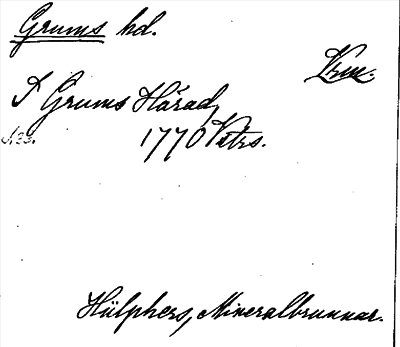 Grums hd.
Vrm.
I Grums Härad,
1770 Vettrs.
Hülphers, Mineralbrunnar.